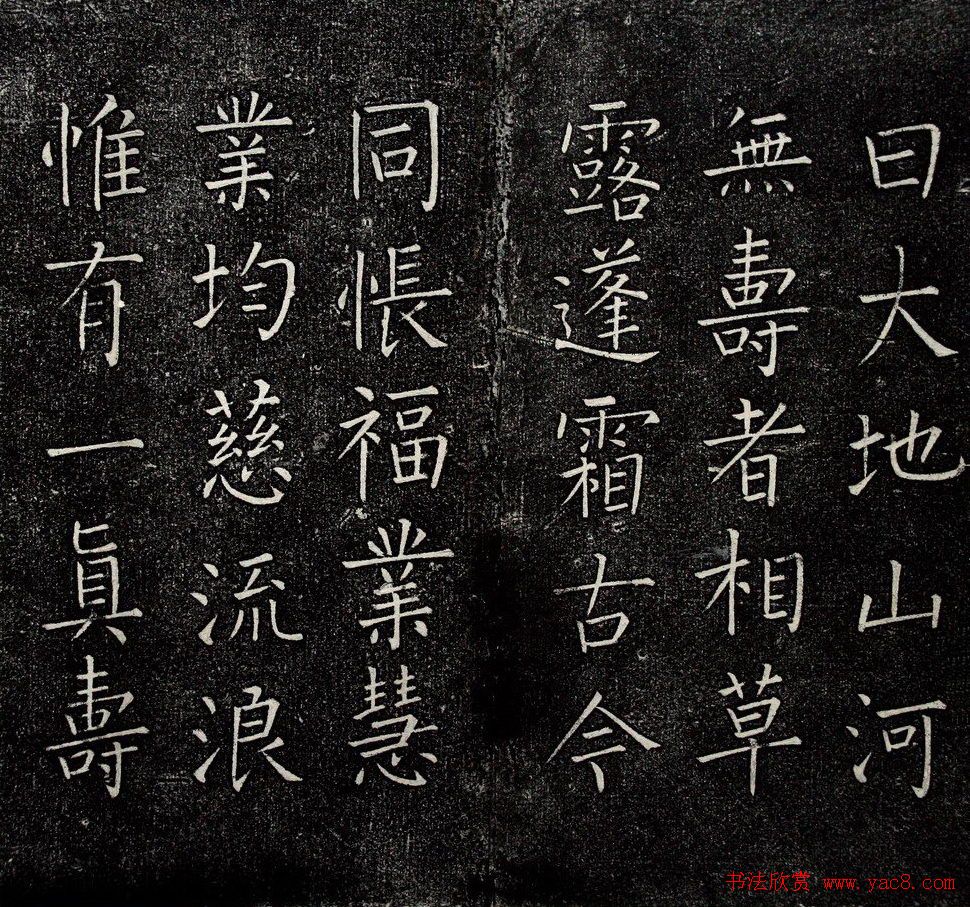 曰大地山河
無壽者相草
露蓬霜古今
同悵福業慧
業均慈流浪
惟有一眞壽
书法欣赏 www.yac8.com